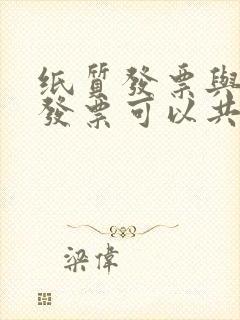 纸質發票與
發票可以共
梁偉